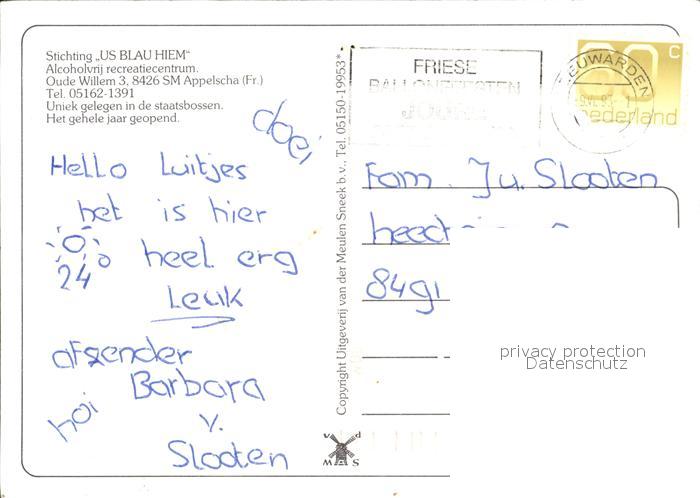 Stichting „US BLAU HIEM"
Alcoholvrij recreatiecentrum.
Oude Willem 3, 8426 SM Appelscha (Fr.)
Tel. 05162-1391
Uniek gelegen in de staatsbossen.
Het gehele jaar geopend.
doei
Hello Luitjes
het is hier
24° heel erg
Leuk
afzender
Barbara
hoi
v.
Slooten
Copyright Uitgeverij van der Meulen Sneek b.v., Tel. 05150-19953*
v d
M S
FRIESE
BALLONFEESTEN
JOURE
LEEUWARDEN
60 c
nederland
Fam. J v. Slooten
8491
privacy protection
Datenschutz